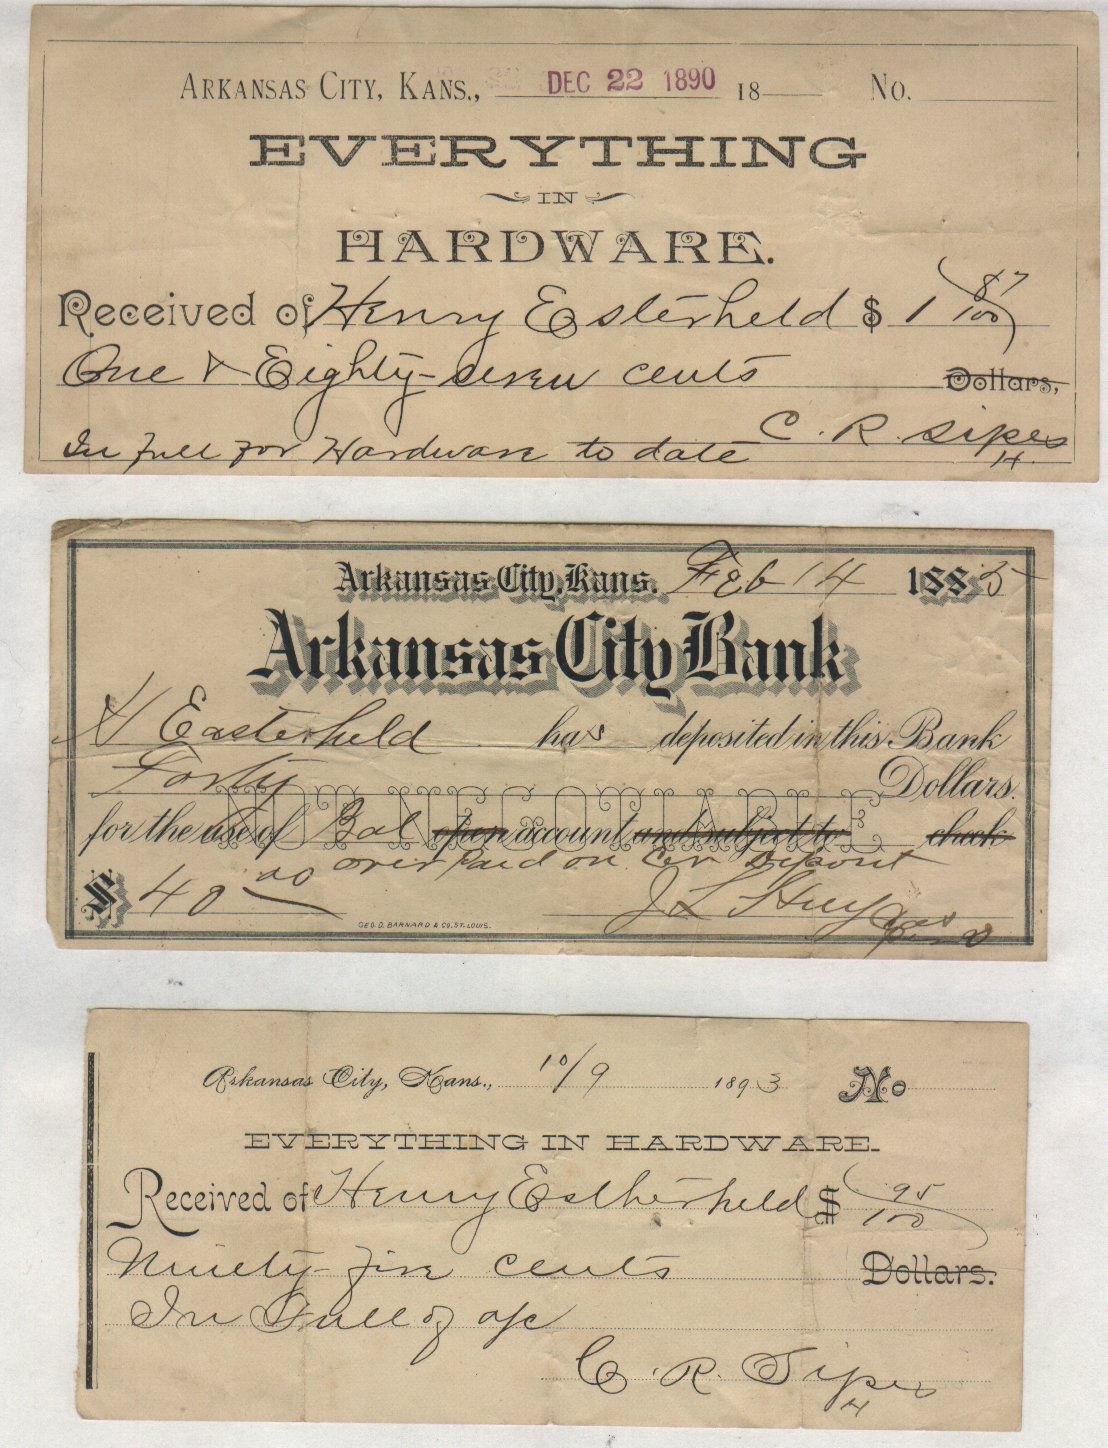 ARKANSAS CITY, KANS., DEC 22 1890 18 No.
EVERYTHING
IN
HARDWARE.
Received of Henry Esterheld $ 1 87/100
One & Eighty-seven cents Dollars,
In full for Hardware to date C. R. Sipes
H.
Arkansas City, Kans. Feb 14 1885
Arkansas City Bank
H Easterheld has deposited in this Bank
Forty Dollars.
NOT NEGOTIABLE
for the use of Bal upon account and subject to check
over Paid on Cer Deposit
$ 40 00 J L Huey
GEO. D. BARNARD & CO. ST. LOUIS.
Arkansas City, Kans., 10/9 1893 No
EVERYTHING IN HARDWARE.
Received of Henry Estherheld $ 95/100
Ninety-five cents Dollars.
In Full of a/c
C. R. Sipes
H